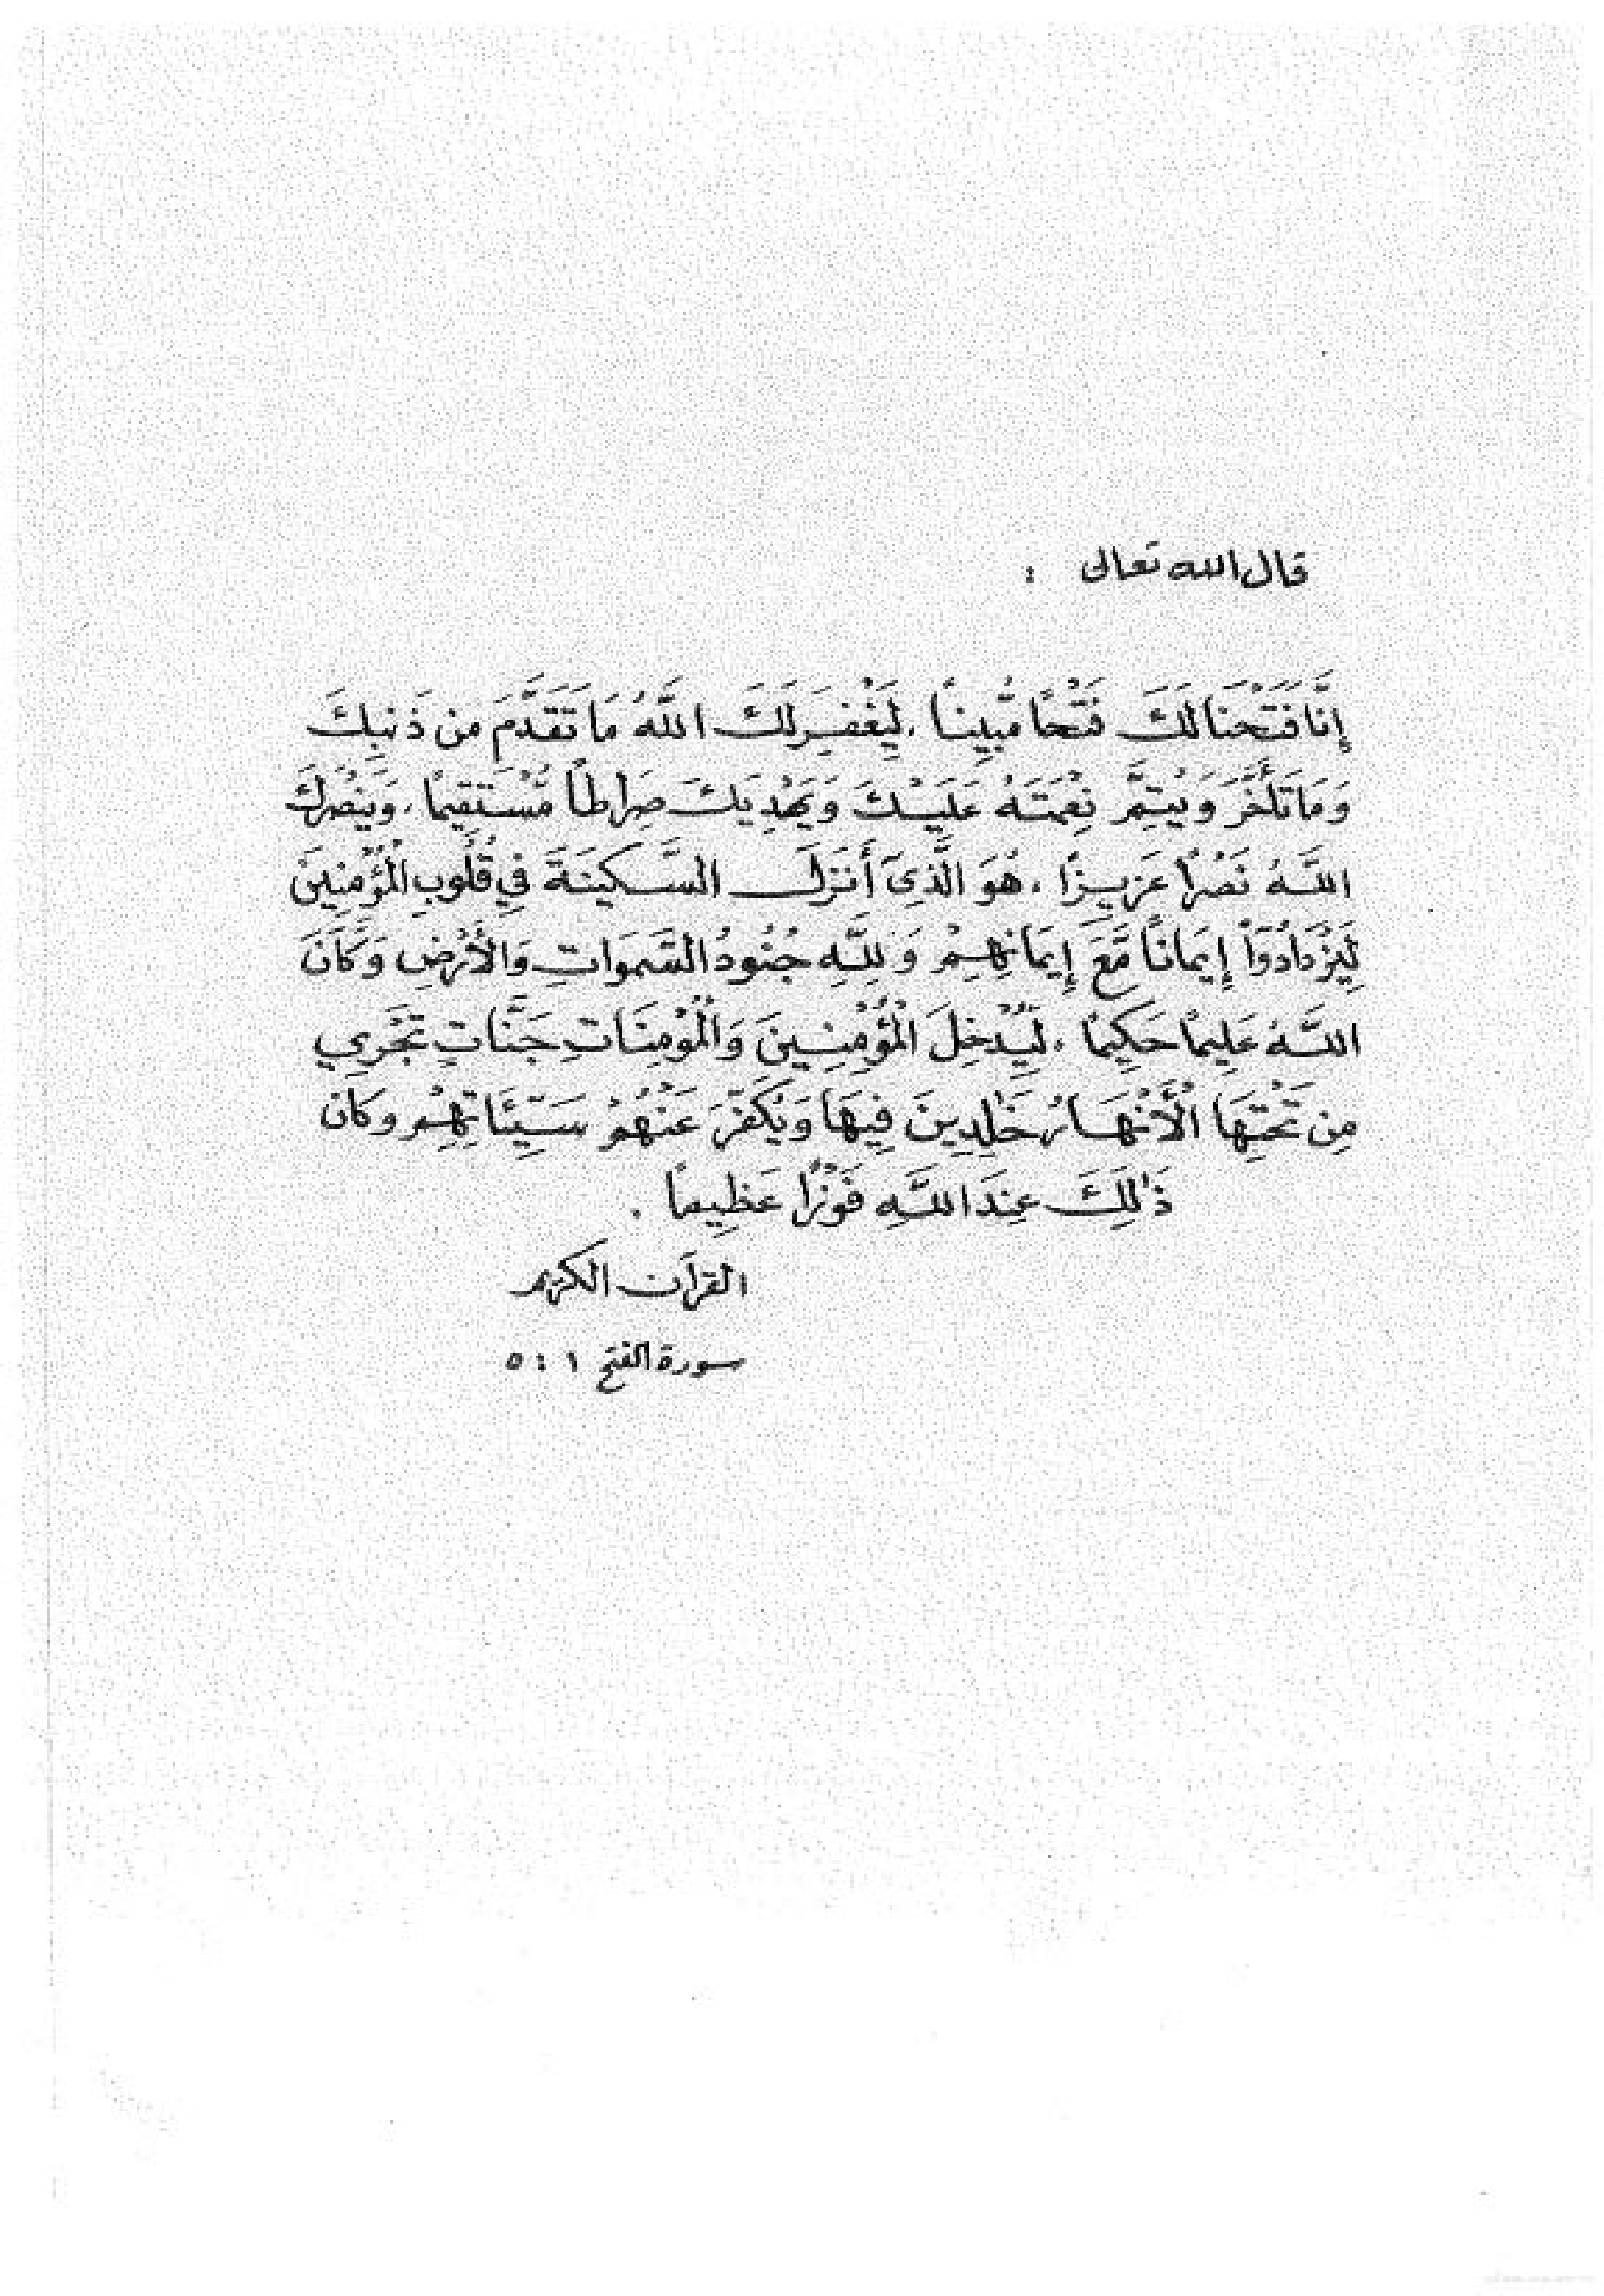 قال الله تعالى :
إِنَّا فَتَحْنَا لَكَ فَتْحًا مُّبِينًا . لِيَغْفِرَ لَكَ اللَّهُ مَا تَقَدَّمَ مِن ذَنبِكَ
وَمَا تَأَخَّرَ وَيُتِمَّ نِعْمَتَهُ عَلَيْكَ وَيَهْدِيَكَ صِرَاطًا مُّسْتَقِيمًا . وَيَنصُرَكَ
اللَّهُ نَصْرًا عَزِيزًا . هُوَ الَّذِي أَنزَلَ السَّكِينَةَ فِي قُلُوبِ الْمُؤْمِنِينَ
لِيَزْدَادُوا إِيمَانًا مَّعَ إِيمَانِهِمْ وَلِلَّهِ جُنُودُ السَّمَوَاتِ وَالْأَرْضِ وَكَانَ
اللَّهُ عَلِيمًا حَكِيمًا . لِيُدْخِلَ الْمُؤْمِنِينَ وَالْمُؤْمِنَاتِ جَنَّاتٍ تَجْرِي
مِن تَحْتِهَا الْأَنْهَارُ خَٰلِدِينَ فِيهَا وَيُكَفِّرَ عَنْهُمْ سَيِّئَاتِهِمْ وَكَانَ
ذَٰلِكَ عِندَ اللَّهِ فَوْزًا عَظِيمًا .
القرآن الكريم
سورة الفتح ١ : ٥